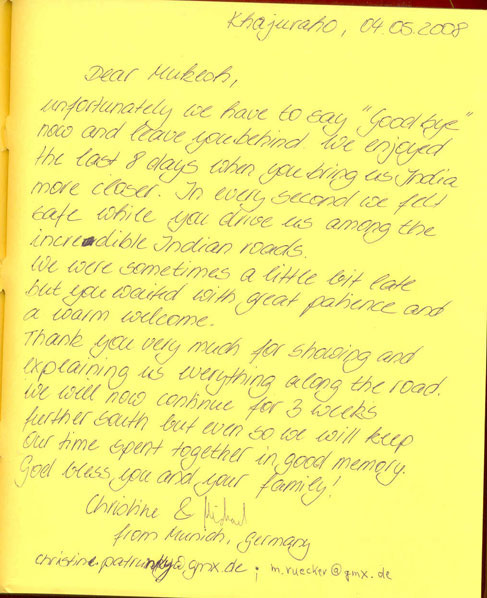 Khajuraho, 04.05.2008
Dear Mukesh,
unfortunately we have to say "Good bye"
now and leave you behind. We enjoyed
the last 8 days when you bring us India
more closer. In every second we felt
safe while you drive us among the
incredible Indian roads.
We were sometimes a little bit late
but you waited with great patience and
a warm welcome.
Thank you very much for showing and
explaining us everything along the road.
We will now continue for 3 weeks
further south but even so we will keep
Our time spent together in good memory.
God bless you and your family!
Christine & Michael
from Munich, Germany
@gmx.de ; m.ruecker@gmx.de